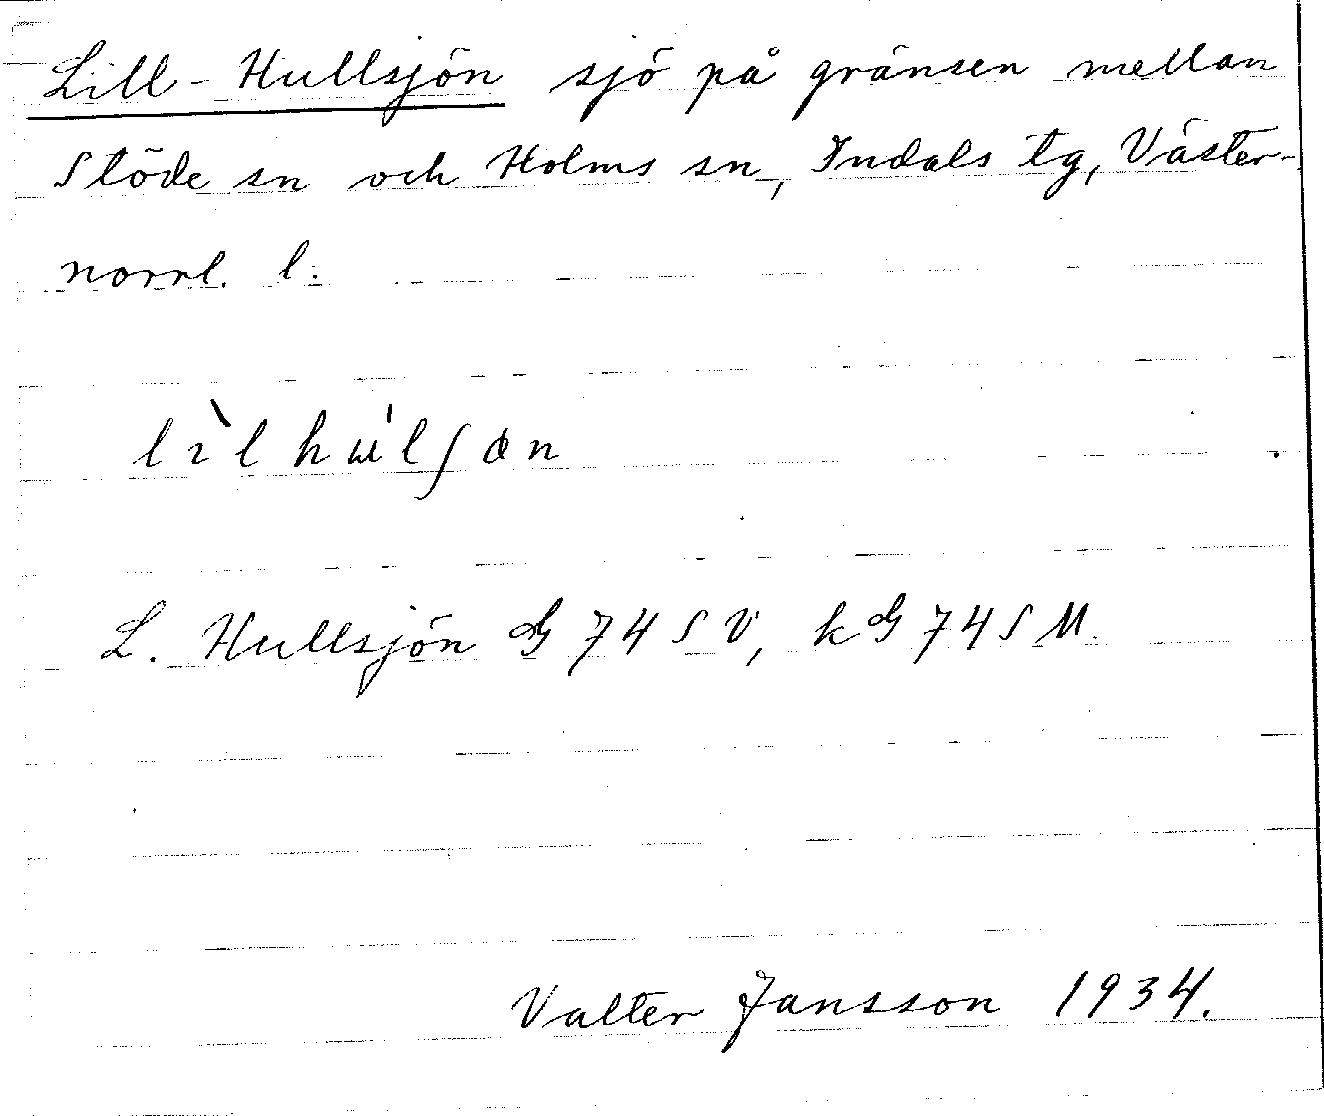 Lill-Hullsjön sjö på gränsen mellan
Stöde sn och Holms sn, Indals tg, Väster-
norrl. l.
L. Hullsjön G 74 SV, kG 74 S M.
Valter Jansson 1934.